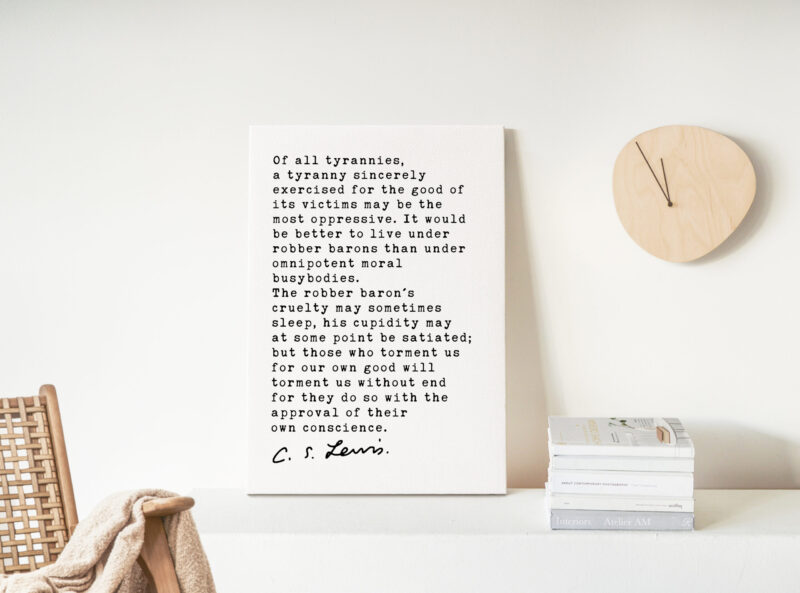 Of all tyrannies,
a tyranny sincerely
exercised for the good of
its victims may be the
most oppressive. It would
be better to live under
robber barons than under
omnipotent moral
busybodies.
The robber baron's
cruelty may sometimes
sleep, his cupidity may
at some point be satiated;
but those who torment us
for our own good will
torment us without end
for they do so with the
approval of their
own conscience.
C. S. Lewis.
Interiors Atelier AM